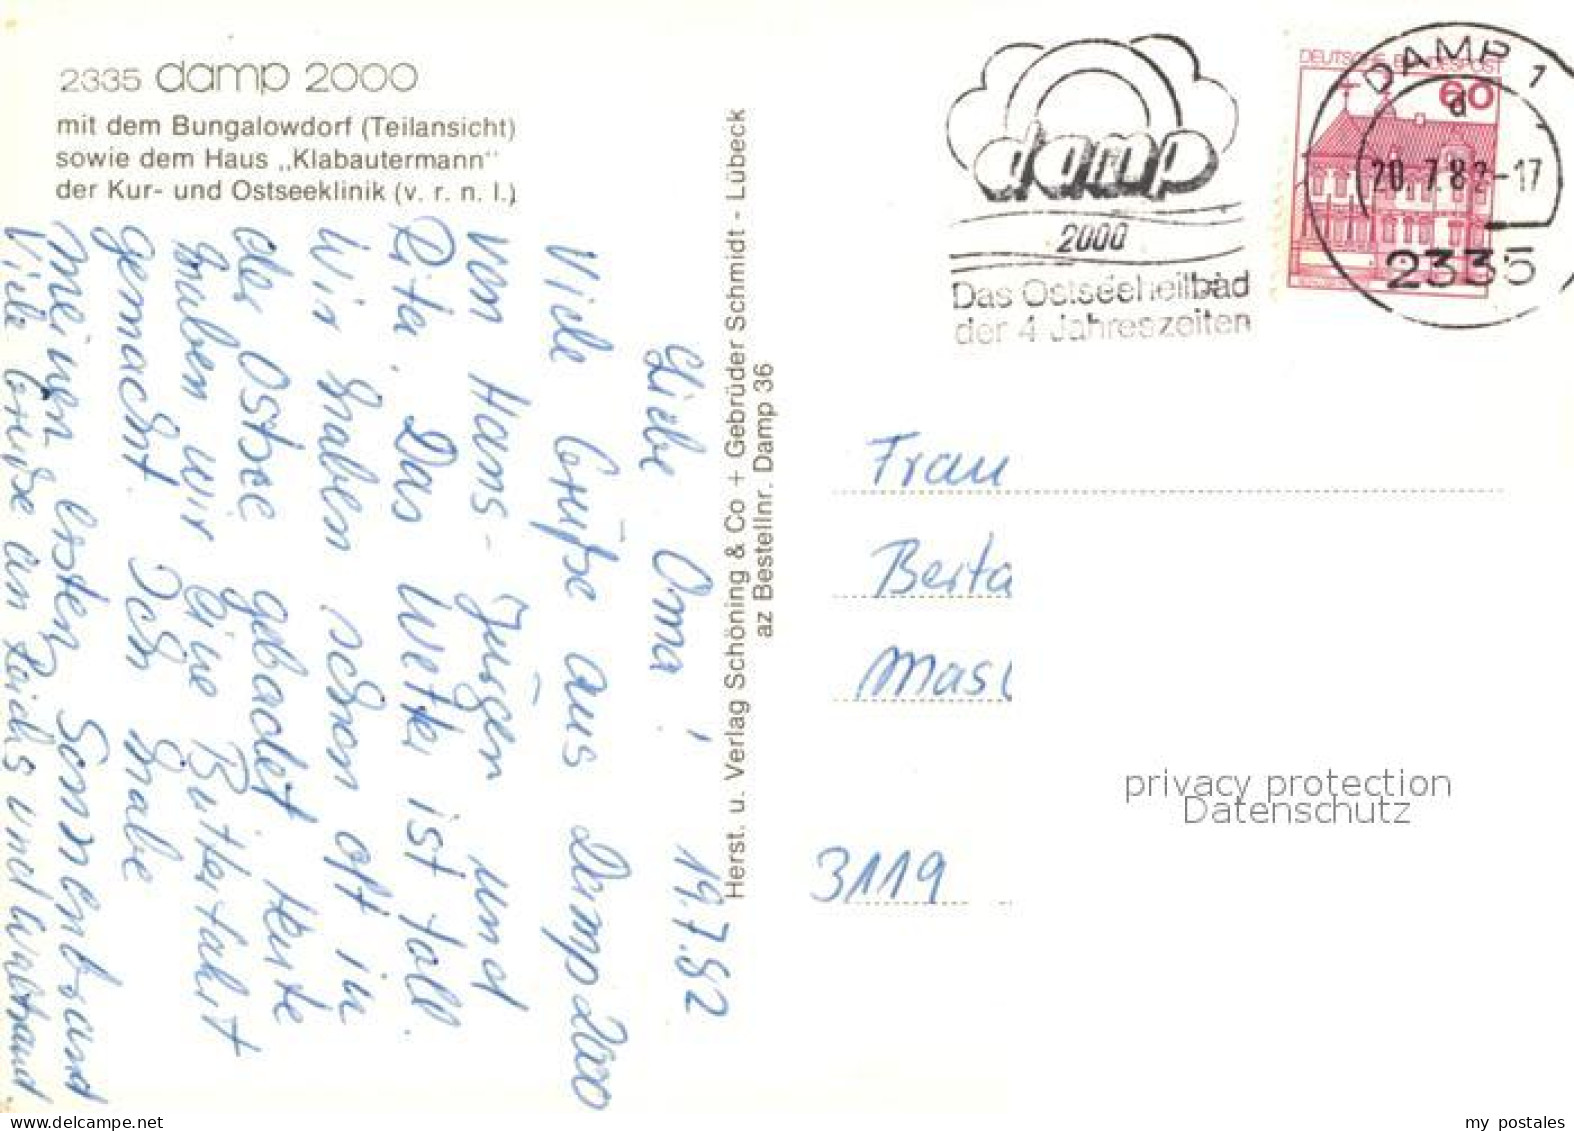 2335 damp 2000
mit dem Bungalowdorf (Teilansicht)
sowie dem Haus „Klabautermann"
der Kur- und Ostseeklinik (v. r. n. l.)
Liebe Oma! 19.7.82
Viele Grüße aus Damp 2000
von Hans-Jürgen und
Rita. Das Wetter ist toll.
Wir haben schon oft in
der Ostsee gebadet. Heute
haben wir eine Butterfahrt
gemacht. Ich habe
meinen ersten Sonnenbrand
Viele Grüße an Reichs und Waltraud.
Herst. u. Verlag Schöning & Co + Gebrüder Schmidt - Lübeck
az Bestellnr. Damp 36
damp
2000
Das Ostseeheilbad
der 4 Jahreszeiten
DEUTSCHE BUNDESPOST
60
DAMP 1
d
20.7.82-17
2335
Frau
Berta
Mas
3119
privacy protection
Datenschutz
my postales